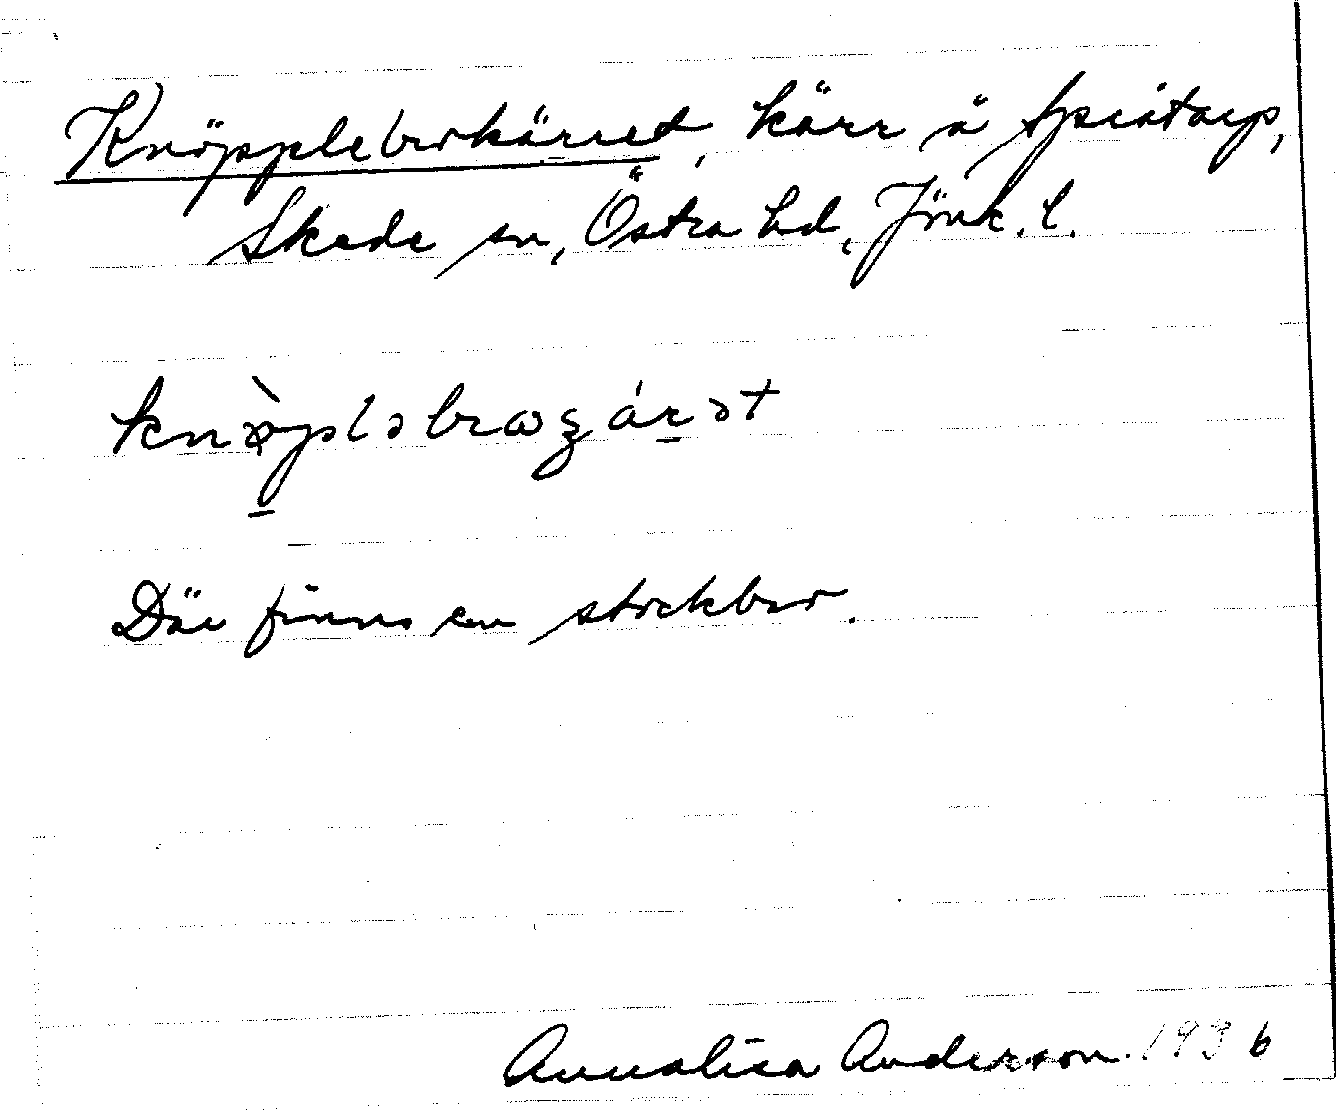 Knöpplebrokärret, kärr å Spictarp,
Skede sn, Östra hd, Jönk. l.
knø̀pləbrωȝárət
Där finns en stockbro.
Annalisa Anderson. 1936